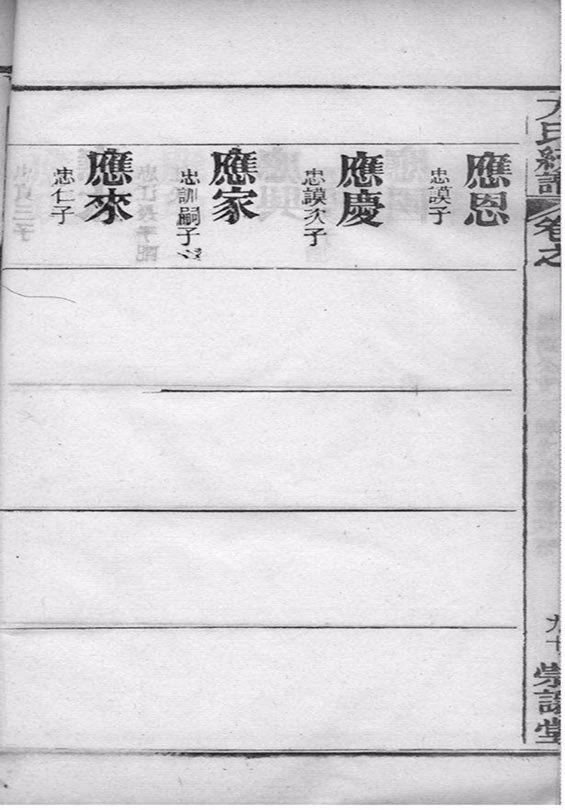 應恩
忠謨子
應慶
忠謨次子
應家
忠訓嗣子
應來
忠仁子
氏
譜
卷之
崇讓堂